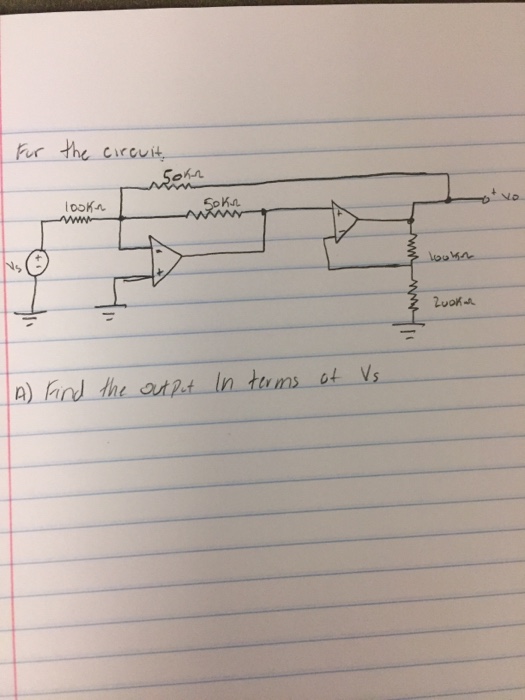 For the circuit,
50KΩ
100KΩ
50KΩ
+ Vo
- +
Vs + -
- +
100KΩ
200KΩ
A) Find the output In terms of Vs